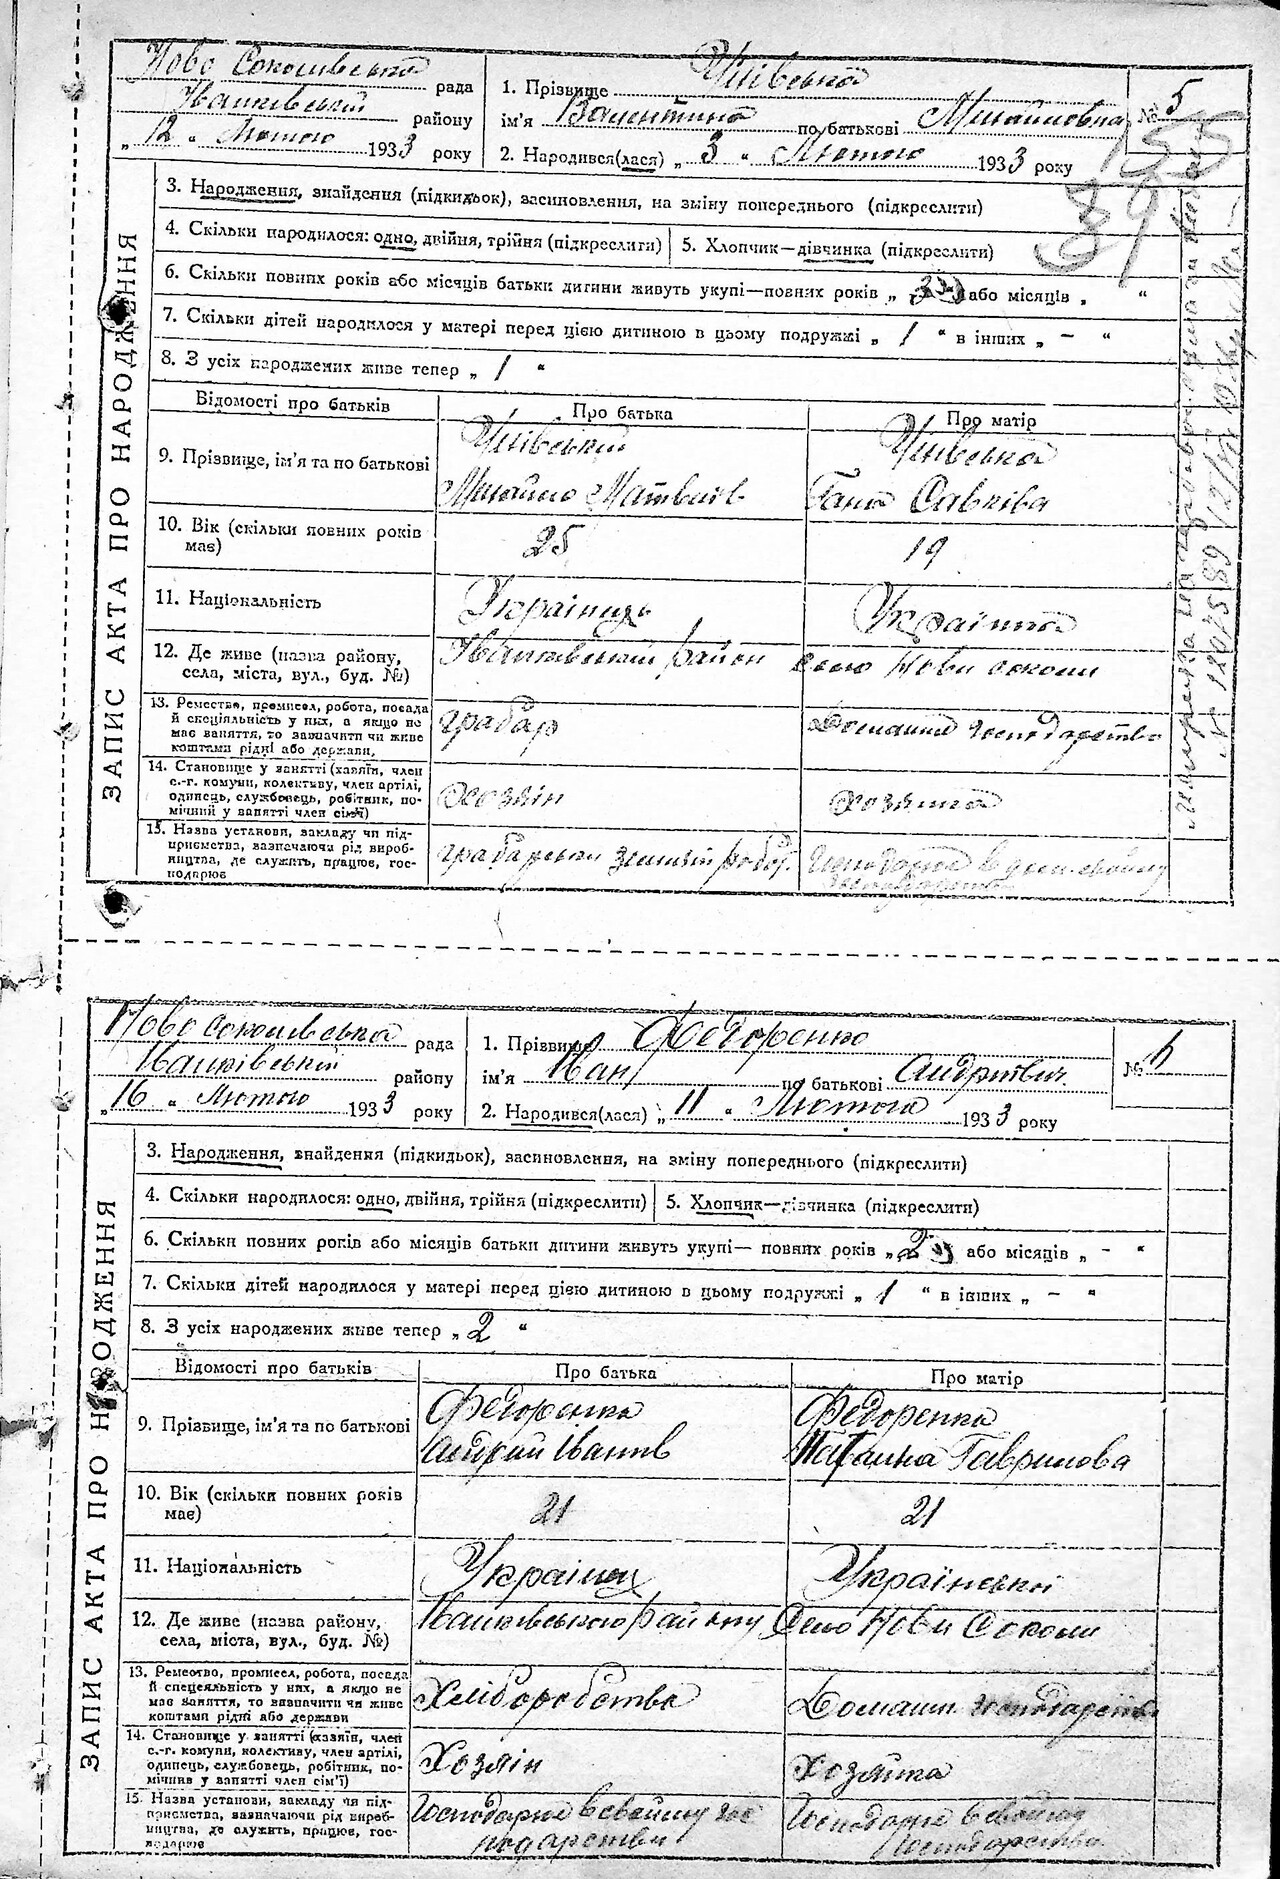 Ново Соколивська рада
Іванківський району
„ 12 „ Лютого 1933 року
1. Прізвище Уніївська
ім'я Валентина по батькові Михайловна
2. Народився(лася) „ 3 „ Лютого 1933 року
№ 5
39
ЗАПИС АКТА ПРО НАРОДЖЕННЯ
3. Народження, знайдення (підкидьок), засиновлення, на зміну попереднього (підкреслити)
4. Скільки народилося: одно, двійня, трійня (підкреслити)
5. Хлопчик—дівчинка (підкреслити)
6. Скільки повних років або місяців батьки дитини живуть укупі—повних років „ або місяців „ “
7. Скільки дітей народилося у матері перед цією дитиною в цьому подружжі „ 1 “ в інших „ – “
8. З усіх народжених живе тепер „ 1 “
Відомості про батьків
Про батька
Про матір
9. Прізвище, ім'я та по батькові
Михайло Матвиїв
Гана Савкова
10. Вік (скільки повних років має)
25
19
11. Національність
Українць
Українка
12. Де живе (назва району, села, міста, вул., буд. №)
Іванківський район
село Нови Соколи
13. Ремество, промисел, робота, посада й спеціяльність у них, а якщо не має заняття, то зазначити чи живе коштами рідні або держави.
грабар
Домашнє господарство
14. Становище у занятті (хазяїн, член с.-г. комуни, колективу, член артілі, одинець, службовець, робітник, помічний у занятті член сім'ї)
Хозяін
хозяйка
15. Назва установи, закладу чи підприємства, зазначаючи рід виробництва, де служить, працює, господарює
грабарськи земляні робот.
Господарює в
№ 180758
Ново Соколивська рада
Іванківський району
„ 16 „ Лютого 1933 року
1. Прізвище Федоренко
ім'я Иван по батькові Андриєвич
2. Народився(лася) „ 11 „ Лютого 1933 року
№ 6
ЗАПИС АКТА ПРО НАРОДЖЕННЯ
3. Народження, знайдення (підкидьок), засиновлення, на зміну попереднього (підкреслити)
4. Скільки народилося: одно, двійня, трійня (підкреслити)
5. Хлопчик—дівчинка (підкреслити)
6. Скільки повних років або місяців батьки дитини живуть укупі— повних років „ 2 “ або місяців „ – “
7. Скільки дітей народилося у матері перед цією дитиною в цьому подружжі „ 1 “ в інших „ – “
8. З усіх народжених живе тепер „ 2 “
Відомості про батьків
Про батька
Про матір
9. Прізвище, ім'я та по батькові
Федоренко
Андрий Іванів
Федоренко
Наталка Гаврилова
10. Вік (скільки повних років має)
21
21
11. Національність
Українц
Української
12. Де живе (назва району, села, міста, вул., буд. №)
Иванківського району
Село Нови Соколи
13. Ремество, промисел, робота, посада й спеціяльність у них, а якщо не має заняття, то зазначити чи живе коштами рідні або держави
Хліборобство
Домашн. господарство
14. Становище у занятті (хазяїн, член с.-г. комуни, колективу, член артілі, одинець, службовець, робітник, помічний у занятті член сім'ї)
Хозяін
Хозяйка
15. Назва установи, закладу чи підприємства, зазначаючи рід виробництва, де служить, працює, господарює
Господарює в свойму господарстви
Господарює в свойму господарстви